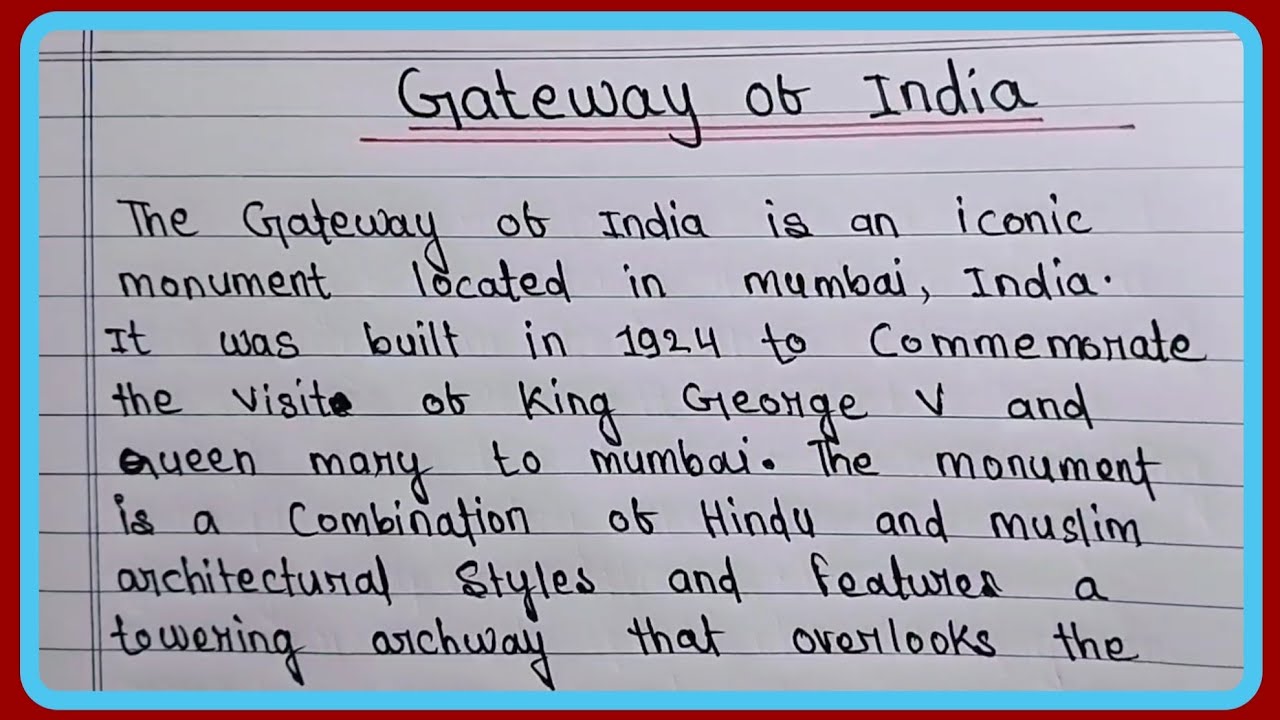 Gateway of India
The Gateway of India is an iconic
monument located in mumbai, India.
It was built in 1924 to Commemorate
the visit of King George V and
Queen mary to mumbai. The monument
is a Combination of Hindu and muslim
architectural Styles and features a
towering archway that overlooks the